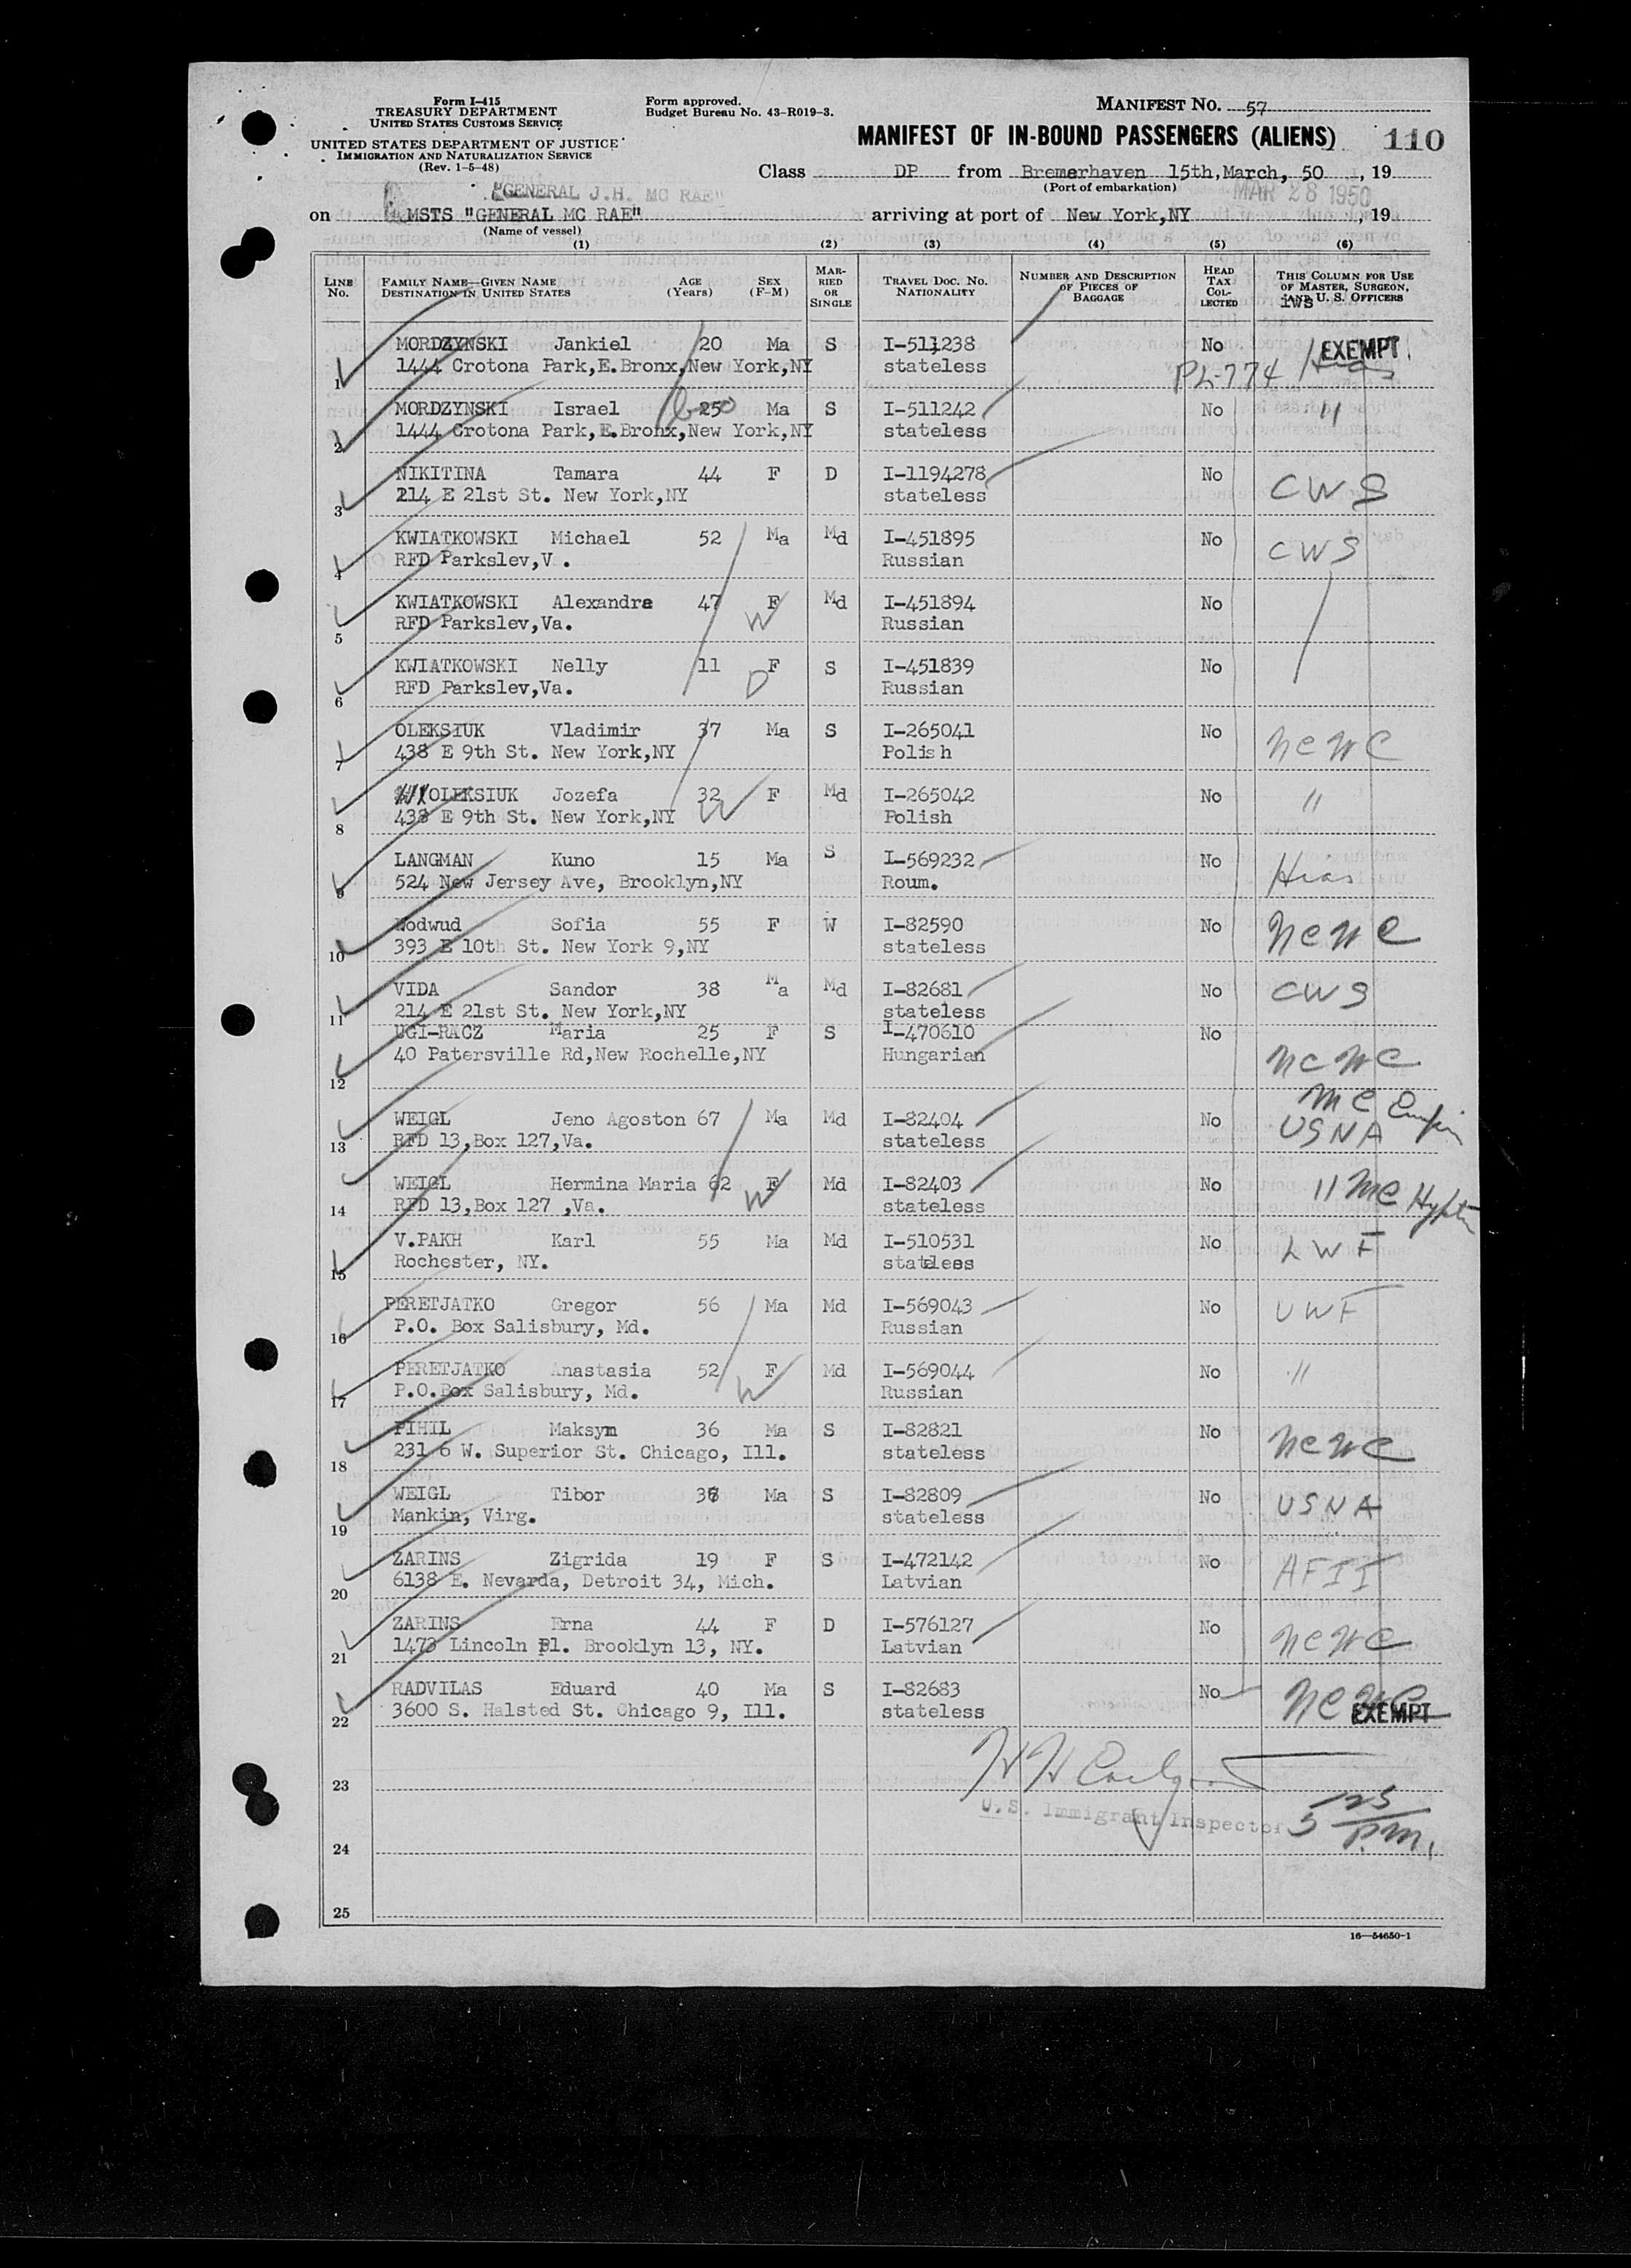 Form I-415
TREASURY DEPARTMENT
UNITED STATES CUSTOMS SERVICE
UNITED STATES DEPARTMENT OF JUSTICE
IMMIGRATION AND NATURALIZATION SERVICE
(Rev. 1-5-48)
Form approved.
Budget Bureau No. 43-R019-3.
MANIFEST NO. 57
MANIFEST OF IN-BOUND PASSENGERS (ALIENS) 110
Class DP from Bremerhaven 15th,March, 50, 19
(Port of embarkation)
"GENERAL J.H. MC RAE" MAR 28 1950
on MSTS "GENERAL MC RAE" arriving at port of New York,NY, 19
(Name of vessel)
(1) (2) (3) (4) (5) (6)
LINE No. FAMILY NAME—GIVEN NAME DESTINATION IN UNITED STATES AGE (Years) SEX (F-M) MARRIED OR SINGLE TRAVEL DOC. NO. NATIONALITY NUMBER AND DESCRIPTION OF PIECES OF BAGGAGE HEAD TAX COLLECTED THIS COLUMN FOR USE OF MASTER, SURGEON, AND U. S. OFFICERS
1 MORDZYNSKI Jankiel 20 Ma S I-511238 No EXEMPT Hias
1444 Crotona Park,E.Bronx,New York,NY stateless PL-774
2 MORDZYNSKI Israel 25 Bro Ma S I-511242 No "
1444 Crotona Park,E.Bronx,New York,NY stateless
3 NIKITINA Tamara 44 F D I-1194278 No CWS
214 E 21st St. New York,NY stateless
4 KWIATKOWSKI Michael 52 Ma Md I-451895 No CWS
RFD Parkslev,V . Russian
5 KWIATKOWSKI Alexandra 47 F W Md I-451894 No
RFD Parkslev,Va. Russian
6 KWIATKOWSKI Nelly 11 F D S I-451839 No
RFD Parkslev,Va. Russian
7 OLEKSIUK Vladimir 37 Ma S I-265041 No NCWC
438 E 9th St. New York,NY Polish
8 OLEKSIUK Jozefa 32 W F Md I-265042 No "
438 E 9th St. New York,NY Polish
9 LANGMAN Kuno 15 Ma S I-569232 No Hias
524 New Jersey Ave, Brooklyn,NY Roum.
10 Wodwud Sofia 55 F W I-82590 No NCWC
393 E 10th St. New York 9,NY stateless
11 VIDA Sandor 38 Ma Md I-82681 No CWS
214 E 21st St. New York,NY stateless
12 UGI-RACZ Maria 25 F S I-470610 No NCWC
40 Patersville Rd,New Rochelle,NY Hungarian
13 WEIGL Jeno Agoston 67 Ma Md I-82404 No MC USNA
RFD 13,Box 127,Va. stateless
14 WEIGL Hermina Maria 62 F W Md I-82403 No " MC
RFD 13,Box 127 ,Va. stateless
15 V.PAKH Karl 55 Ma Md I-510531 No LWF
Rochester, NY. stateless
16 PERETJATKO Gregor 56 Ma Md I-569043 No UWF
P.O. Box Salisbury, Md. Russian
17 PERETJATKO Anastasia 52 F W Md I-569044 No "
P.O.Box Salisbury, Md. Russian
18 PIHIL Maksym 36 Ma S I-82821 No NCWC
231 6 W. Superior St. Chicago, Ill. stateless
19 WEIGL Tibor 38 Ma S I-82809 No USNA
Mankin, Virg. stateless
20 ZARINS Zigrida 19 F S I-472142 No AFII
6138 E. Nevarda, Detroit 34, Mich. Latvian
21 ZARINS Erna 44 F D I-576127 No NCWC
1473 Lincoln Pl. Brooklyn 13, NY. Latvian
22 RADVILAS Eduard 40 Ma S I-82683 No NCWC EXEMPT
3600 S. Halsted St. Chicago 9, Ill. stateless
23
U.S. Immigrant Inspector 5 125 P.M.
24
25
16—54650-1